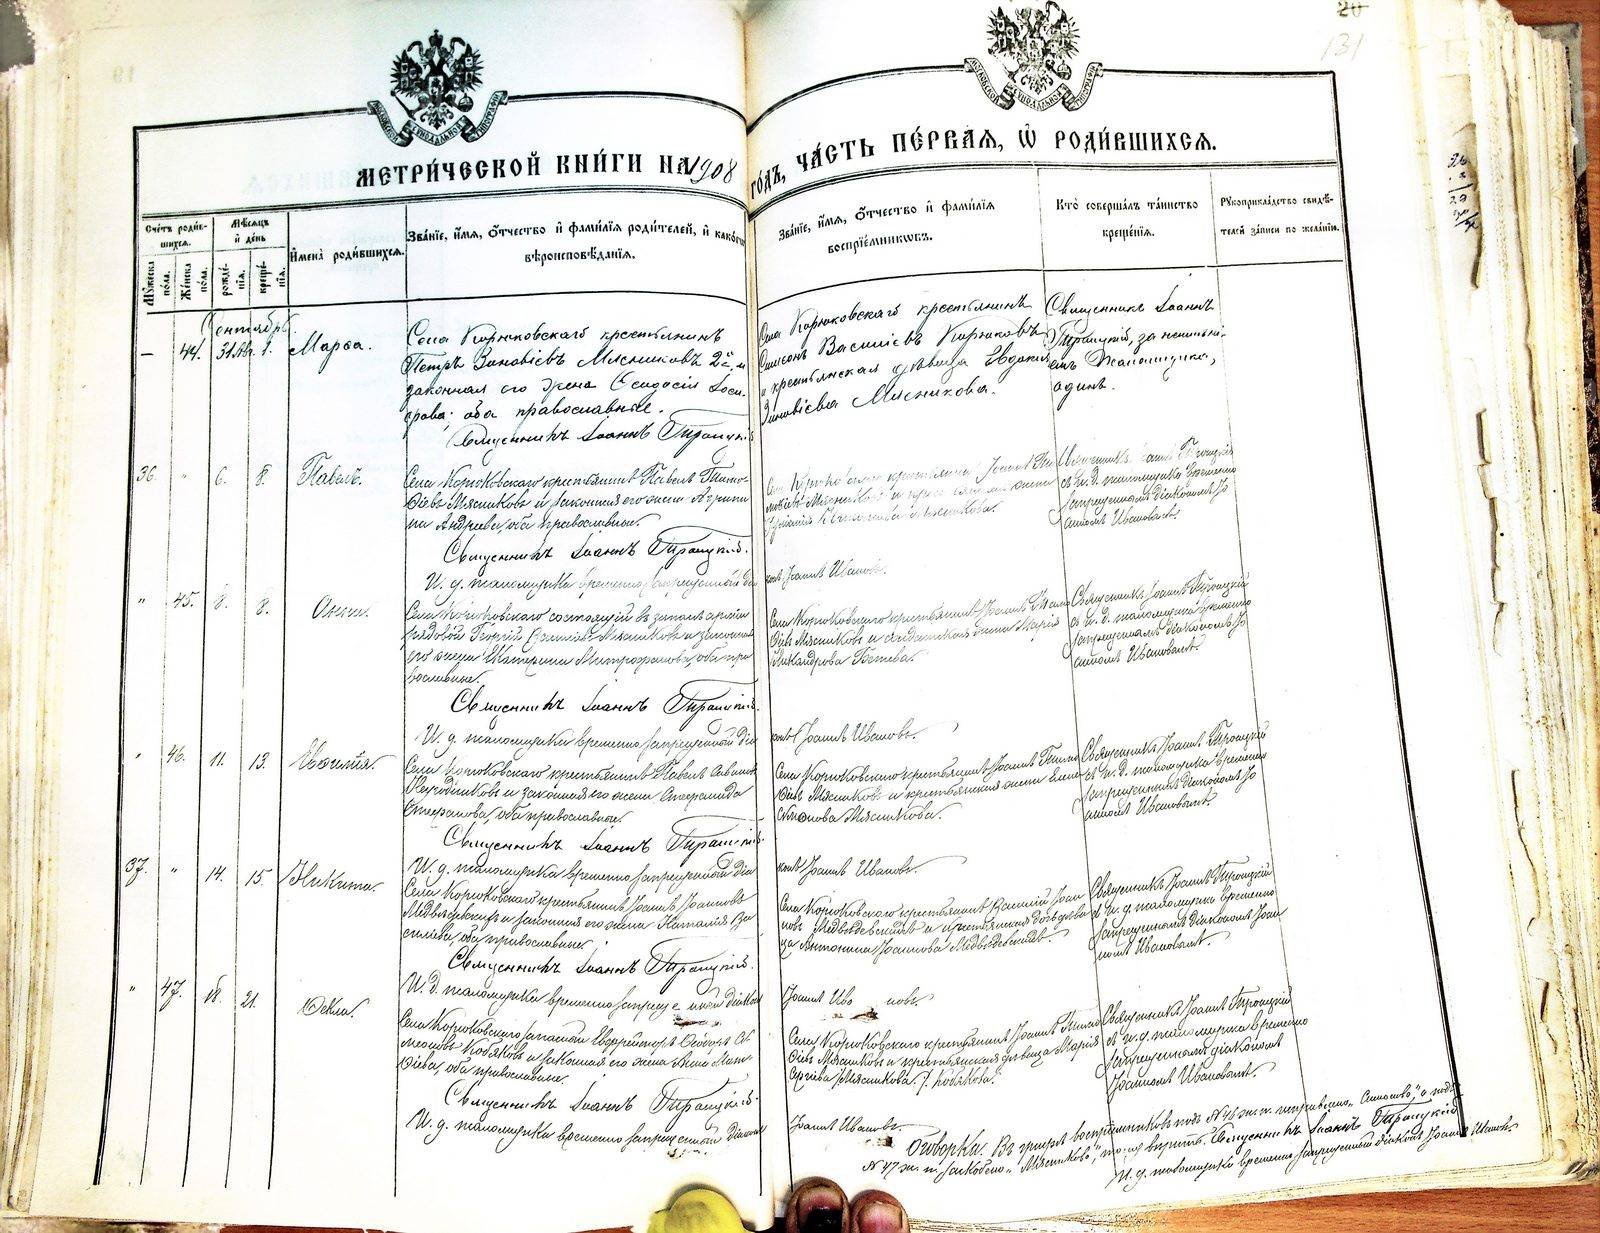 20
131
МОСКОВСКОЙ СѴНОДАЛЬНОЙ ТИПОГРАФІИ
МОСКОВСКОЙ СѴНОДАЛЬНОЙ ТИПОГРАФІИ
МЕТРИ́ЧЕСКОЙ КНИ́ГИ НА 1908 ГО́ДЪ, ЧА́СТЬ ПЕ́РВАЯ, Ѡ҆ РОДИ́ВШИХСЯ.
Сче́тъ роди́вшихся.
Мꙋ́жеска по́ла.
Же́нска по́ла.
Мѣ́сяцъ и҆ де́нь
рожде́нїя.
креще́нїя.
И҆мена̀ роди́вшихся.
Зва́нїе, и҆́мя, ѻ҆́тчество и҆ фами́лїя роди́телей, и҆ како́гѡ
вѣроисповѣ́данїя.
Зва́нїе, и҆́мя, ѻ҆́тчество и҆ фами́лїя
воспрїе́мникѡвъ.
Кто̀ соверша́лъ та́инство
креще́нїя.
Рꙋкоприкла́дство свидѣ́-
телей за́писи по жела́нїю.
Сентябрь.
— 44. 31 Ав. 1. Марѳа.
Села Корюковскаго крестьянинъ
Петръ Зиновіевъ Мясниковъ 2й, и
законная его жена Ѳеодосія
оба православные.
Священникъ Іоаннъ Троицкій
Села Корюковскаго крестьянинъ
Симеонъ Васильевъ Корюковъ
и крестьянская дѣвица Евдокія
Зиновіева Мясникова.
Священникъ Іоаннъ
Троицкій, за неимѣні-
емъ псаломщика,
одинъ.
36. " 6. 8. Павелъ.
Села Корюковскаго крестьянинъ Павелъ Тимо-
ѳіевъ Мясниковъ и законная его жена Агрипи-
на Андреева, оба православные.
Священникъ Іоаннъ Троицкій.
И. д. псаломщика временно запрещенный діа
конъ Іоаннъ Ивановъ.
Священникъ Іоаннъ Троицкій
съ и. д. псаломщика временно
запрещеннымъ діакономъ Іо
анномъ Ивановымъ.
" 45. 8. 8. Анна.
Села Корюковскаго состоящій въ запасѣ арміи
рядовой Георгій Мясниковъ и законная
его жена Екатерина Митрофанова, оба пра
вославные.
Священникъ Іоаннъ Троицкій.
И. д. псаломщика временно запрещенный діа
конъ Іоаннъ Ивановъ.
Села Корюковскаго крестьянинъ Іоаннъ Тимо
ѳіевъ Мясниковъ и солдатская жена Марія
Никандрова
Священникъ Іоаннъ Троицкій
съ и. д. псаломщика временно
запрещеннымъ діакономъ Іо
анномъ Ивановымъ.
" 46. 11. 13. Евфимія.
Села Корюковскаго крестьянинъ Павелъ
и законная его жена
Стефанова, оба православные.
Священникъ Іоаннъ Троицкій.
И. д. псаломщика временно запрещенный діа
конъ Іоаннъ Ивановъ.
Села Корюковскаго крестьянинъ Іоаннъ Тимо
ѳіевъ Мясниковъ и крестьянская жена Елена
Мясникова.
Священникъ Іоаннъ Троицкій
съ и. д. псаломщика временно
запрещеннымъ діакономъ Іо
анномъ Ивановымъ.
37. " 14. 15. Никита.
Села Корюковскаго крестьянинъ Іоаннъ Іоанновъ
Медвѣдевскихъ и законная его жена Наталія Ва
силева, оба православные.
Священникъ Іоаннъ Троицкій.
И. д. псаломщика временно запрещенный діаконъ
Іоаннъ Ивановъ.
Села Корюковскаго крестьянинъ Василій Іоан
новъ Медвѣдевскихъ и крестьянская дочь дѣви
ца Антонина Іоаннова Медвѣдевскихъ.
Священникъ Іоаннъ Троицкій
съ и. д. псаломщика временно
запрещеннымъ діакономъ Іоан
номъ Ивановымъ.
" 47. 18. 21. Ѳекла.
Села Корюковскаго запасный ефрейторъ Ѳеодоръ
Кобяковъ и законная его жена Анна
оба православные.
Священникъ Іоаннъ Троицкій.
И. д. псаломщика временно запрещенный діаконъ
Іоаннъ Ивановъ.
Села Корюковскаго крестьянинъ Іоаннъ Тимо
ѳіевъ Мясниковъ и крестьянская дѣвица Марія
Сергіева /Мясникова./ Кобякова.
Священникъ Іоаннъ Троицкій
съ и. д. псаломщика временно
запрещеннымъ діакономъ
Іоанномъ Ивановымъ.
Оговорка. Въ графѣ воспріемниковъ подъ № 46 ж. п.
№ 47 ж. п. „Мясникова", вѣрить. Священникъ Іоаннъ Троицкій
И. д. псаломщика временно запрещенный діаконъ Іоаннъ Ивановъ